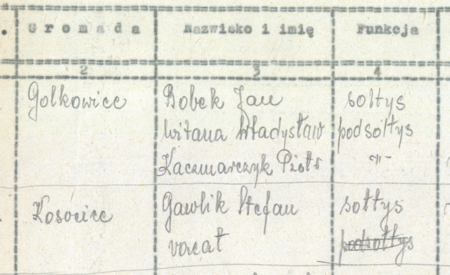 Gromada Nazwisko i imię Funkcja
2 3 4
Golkowice Bobek Jan sołtys
Witana Władysław podsołtys
Kaczmarczyk Piotr -"-
Kosocice Gawlik Stefan sołtys
vacat podsołtys